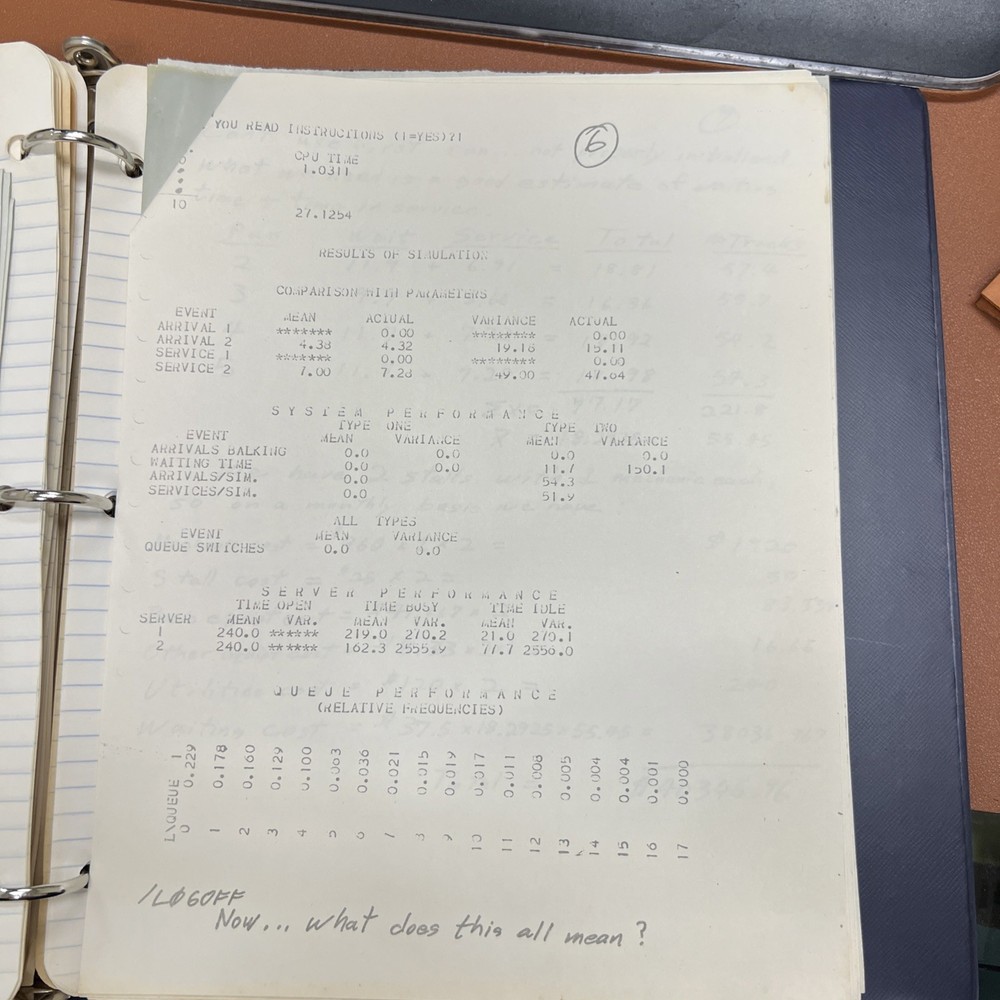 YOU READ INSTRUCTIONS (1=YES)?1
6
CPU TIME
1.0311
10
27.1254
RESULTS OF SIMULATION
COMPARISON WITH PARAMETERS
EVENT MEAN ACTUAL VARIANCE ACTUAL
ARRIVAL 1 ******* 0.00 ******** 0.00
ARRIVAL 2 4.38 4.32 19.18 15.11
SERVICE 1 ******* 0.00 ******** 0.00
SERVICE 2 7.00 7.28 49.00 47.64
SYSTEM PERFORMANCE
TYPE ONE TYPE TWO
EVENT MEAN VARIANCE MEAN VARIANCE
ARRIVALS BALKING 0.0 0.0 0.0 0.0
WAITING TIME 0.0 0.0 11.7 150.1
ARRIVALS/SIM. 0.0 54.3
SERVICES/SIM. 0.0 51.9
ALL TYPES
EVENT MEAN VARIANCE
QUEUE SWITCHES 0.0 0.0
SERVER PERFORMANCE
TIME OPEN TIME BUSY TIME IDLE
SERVER MEAN VAR. MEAN VAR. MEAN VAR.
1 240.0 ****** 219.0 270.2 21.0 270.1
2 240.0 ****** 162.3 2555.9 77.7 2556.0
QUEUE PERFORMANCE
(RELATIVE FREQUENCIES)
L\QUEUE 1
0 0.229
1 0.178
2 0.160
3 0.129
4 0.100
5 0.063
6 0.036
7 0.021
8 0.015
9 0.019
10 0.017
11 0.011
12 0.006
13 0.005
14 0.004
15 0.004
16 0.001
17 0.000
/LØGOFF
Now... what does this all mean?